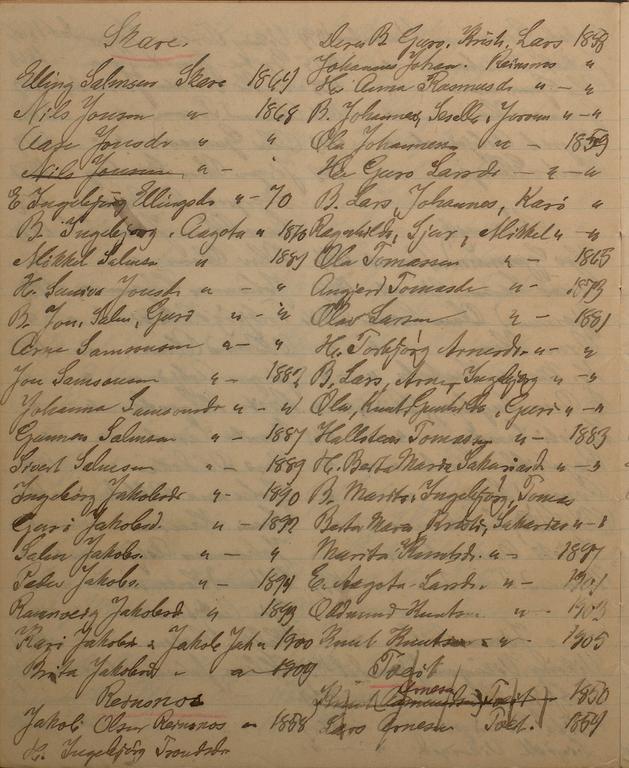 Skare.
Elling Salmsen Skare 1864
Nils Jonsen " 1868
Aase Jonsdr " "
Nils Jonsen " – "
E Ingebjörg Ellingsdr " – 70
B. Ingebjorg, Aagota " 1870
Mikkel Salmsen " 1881
H. Suniva Jonsdr " – "
B. Jon, Salm, Guro " – "
Arne Samsonsen " – "
Jon Samsonsen " – 1882
Johanna Samsonsdr " – "
Gunnar Salmsen " – 1887
Sivert Salmsen " – 1889
Ingebörg Jakobsdr " – 1890
Guri Jakobsd. " – 1892
Salm Jakobs. " – "
Peder Jakobs. " – 1894
Rannveig Jakobsd " 1893
Kari Jakobs " Jakob Jak " 1900
Brita Jakobsd " – 1909
Reinsnos
Jakob Olsen Reinsnos " 1858
H. Ingebjörg Trondsdr
Deres B Guro, Krist, Lars 1858
Johannes Johan. Reinsnos "
H. Anna Rasmusdr " – "
B. Johannes, Seselle, " – "
Ola Johannesen " – 1859
H. Guro Larsdr – " – "
B. Lars, Johannes, Kari "
Ragnhilde, Sjur, Mikkel " – "
Ola Tomassen " – 1865
Angjerd Tomasdr " – 1873
Olav Larsen " – 1881
H. Torbjörg Arnesdr. " – "
B. Lars, Arne, Ingebjörg " – "
Ola, Knut, Gunhilde, Guri " – "
Hallstein Tomassen " – 1883
H. Berta Maria Sakariasd " – "
B. Marita, Ingebjörg, Tomas
Berta Maria, Kristi, Sakarias " – "
Marita Knutsdr. " –
E. Aagota Larsd. " – 1901
Oddmund Knutsen " 1903
Knut Knutsen " " 1905
Toget
Arnesen
1850
Lars Arnesen Toet. 1854